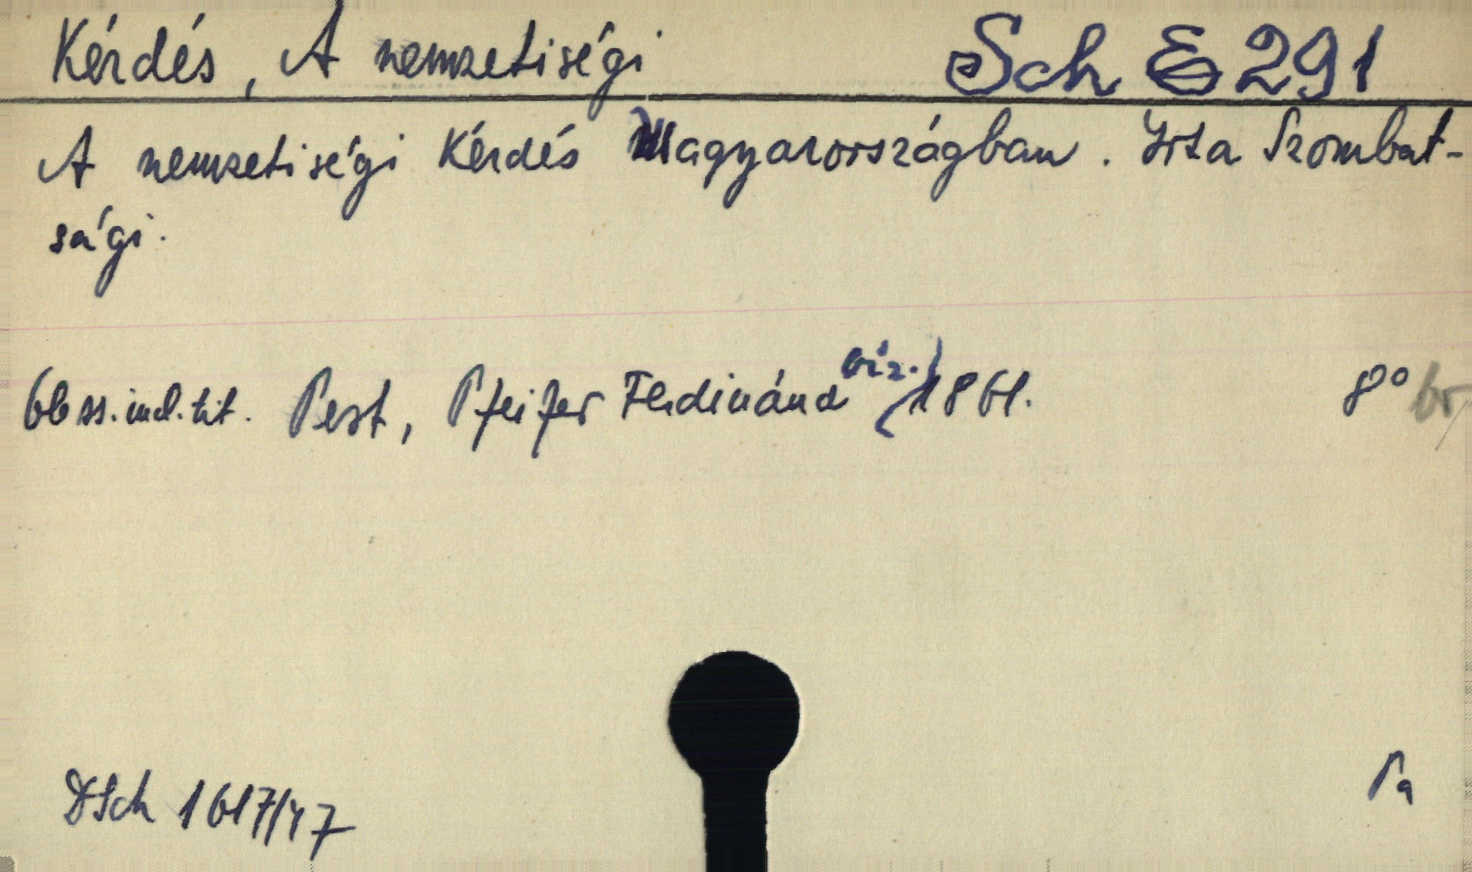 Kérdés, A nemzetiségi Sch E 291
A nemzetiségi Kérdés Magyarországban. Irta Szombat-
sági.
66 ss. incl. tit. Pest, Pfeifer Ferdinánd biz. 1861. 8° br,
DSch 1617/47